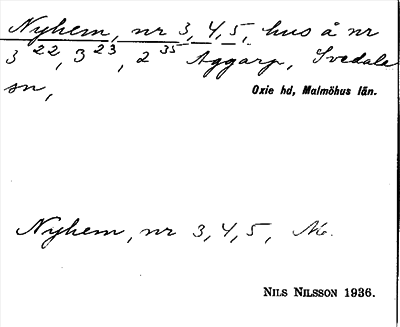 Nyhem, nr 3, 4, 5, hus å nr
3²², 3²³, 2³⁵ Aggarp, Svedala
sn,
Oxie hd, Malmöhus län.
Nyhem, nr 3, 4, 5,
NILS NILSSON 1936.